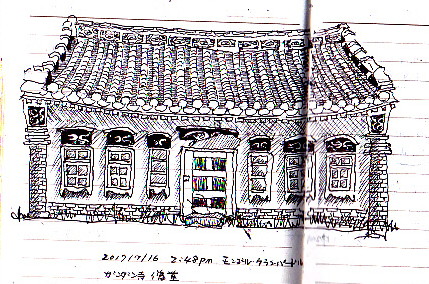 2017/7/16 2:48pm モンゴル・ウランバートル
ガンダン寺 僧堂